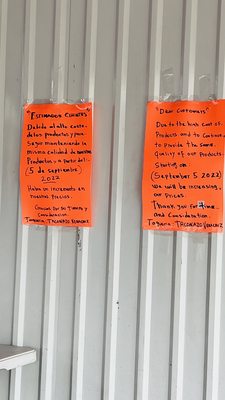 "Estimados Clientes"
Debido al alto costo
de los productos y para
Seguir manteniendo la
misma calidad de nuestros
Productos a partir del:
(5 de septiembre)
2022
Habra un incremento en
nuestros Precios.
Gracias por su tiempo y
Consideracion.
Taqueria: TACONAZO VERACRUZ
"Dear Customers"
Due to the high cost of
Products and to Continue
to Provide the Same
Quality of our Products.
Starting on:
(September 5 2022)
we will be increasing
our Prices.
Thank you for time
and Consideration.
Taqueria: TACONAZO VERACRUZ